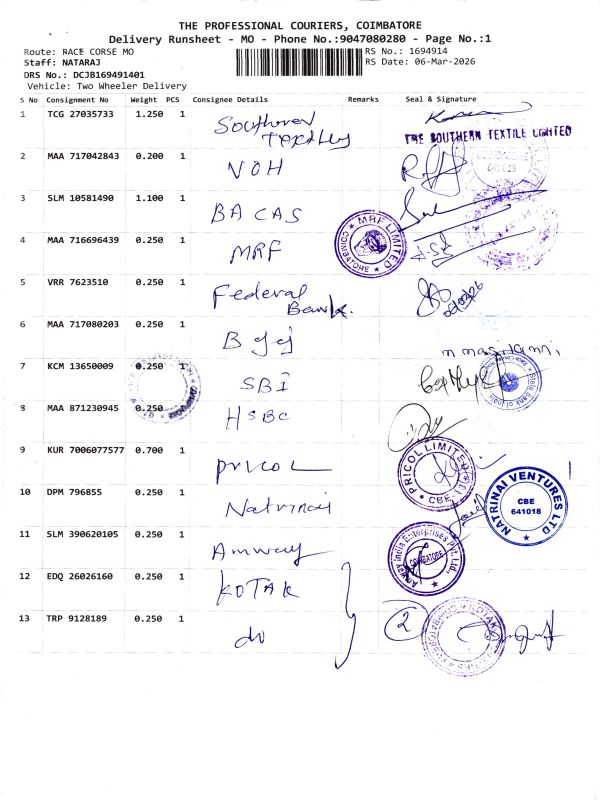 THE PROFESSIONAL COURIERS, COIMBATORE
Delivery Runsheet - MO - Phone No.:9047080280 - Page No.:1
Route: RACE CORSE MO RS No.: 1694914
Staff: NATARAJ RS Date: 06-Mar-2026
DRS No.: DCJB169491401
Vehicle: Two Wheeler Delivery
S No Consignment No Weight PCS Consignee Details Remarks Seal & Signature
1 TCG 27035733 1.250 1 Southern
THE SOUTHERN TEXTILE LIMITED
2 MAA 717042843 0.200 1 VOH
3 SLM 10581490 1.100 1 BACAS
4 MAA 716696439 0.250 1 MRF
MRF LIMITED
COIMBATORE
5 VRR 7623510 0.250 1 Federal
Bank.
6 MAA 717080203 0.250 1
7 KCM 13650009 0.250 1 SBI
State Bank of India
8 MAA 871230945 0.250 HSBC
9 KUR 7006077577 0.700 1 Pricol
PRICOL LIMITED
CBE
10 DPM 796855 0.250 1 Natrinai
NATRINAI VENTURES LTD
CBE
641018
11 SLM 390620105 0.250 1 Amway
Amway India Enterprises Pvt. Ltd.,
COIMBATORE
12 EDQ 26026160 0.250 1 KOTAK
13 TRP 9128189 0.250 1 do
2
KOTAK